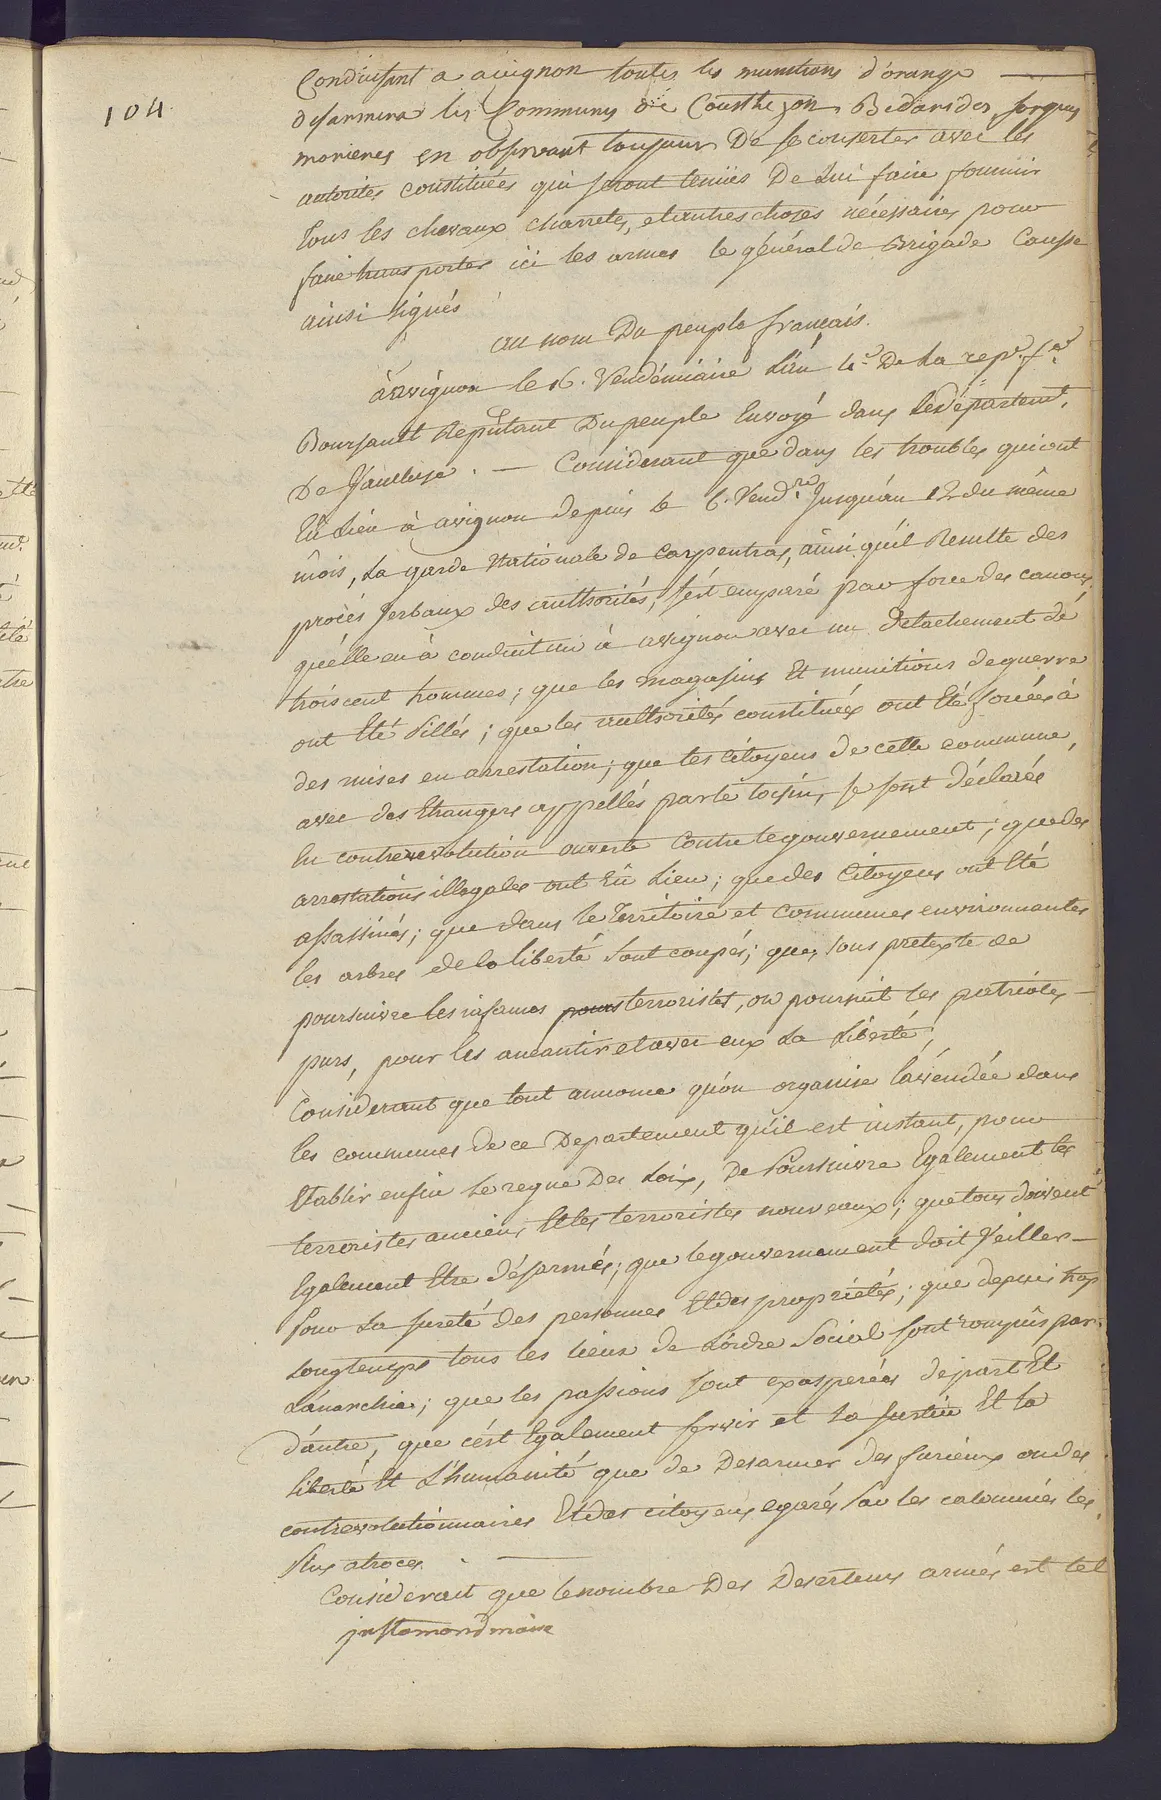 104.
Conduisant a avignon toutes les munitions d'orange
desarmera les Communes de Courthezon Bedarides, sorgues
morieres en observant toujours De se conserter avec les
autorités constituées qui seront tenües De Lui faire fournir
tous les chevaux charretes, et autres choses nécessaires pour
faire transporter ici les armes le général de Brigade Causse
ainsi signés
au nom Du peuple francais.
à avignon le 16. Vendémiaire L'an 4.e De La rep.e f.se
Boursault Repŕtant Du peuple Envoyé dans le département.
De Vaucluse. — Considerant que dans les troubles qui ont
Eû Lieu à avignon depuis le 6. Vend.re Jusqu'au 12 du même
mois, La garde Nationale de Carpentras, ainsi qu'il Resulte des
procès Verbaux des authorités, s'est emparé par force des canons
qu'elle en à conduit un à avignon avec un detachement de
trois cent hommes; que les magasins Et munitions de guerre
ont Eté Pillés; que les authorités constituées ont Eté forcées à
des mises en arrestation; que les Citoyens de cette commune,
avec des Etrangers appellés par le tocsin, se sont déclarés
En contrerevolution ouverte Contre le gouvernement; que des
arrestations illegales ont Eû Lieu; que des Citoyens ont Eté
assassinés; que dans le Territoire et communes environnantes
les arbres de la liberté sont coupés; que, sous pretexte de
poursuivre les infames pours terroristes, on poursuit les patriotes
purs, pour les aneantir et avec eux La Liberté;
Considerant que tout annonce qu'on organise la vendée dans
les communes de ce Departement qu'il est instant, pour
Etablir enfin Le regne Des Loix, De Poursuivre Egalement les
terroristes anciens Et les terroristes nouveaux; que tous doivent
Egalement Etre désarmés; que le gouvernement doit Veiller
Pour La sureté des personnes Et des propriétés; que depuis trop
Longtemps tous les liens de L'ordre Social sont rompûs par
L'anarchie; que les passions sont exasperées de part Et
d'autre, que c'est Egalement servir et la Justice Et la
liberté Et L'humanité que de Desarmer des furieux ou des
contrevolutionnaires Et des citoyens egarés Par les calomnies les
Plus atroces.
Considerant que le nombre Des Deserteurs armés est tel
justamond maire